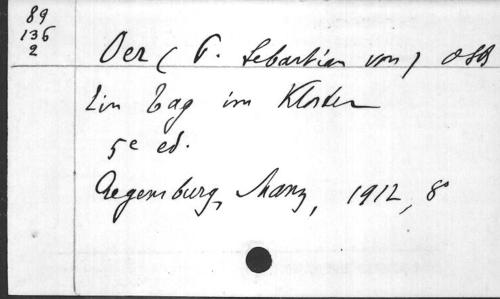 89
136
2
Oer (P. Sebastian von) OSB
Ein Tag im Kloster
5e ed.
Regensburg, Manz, 1912, 8°